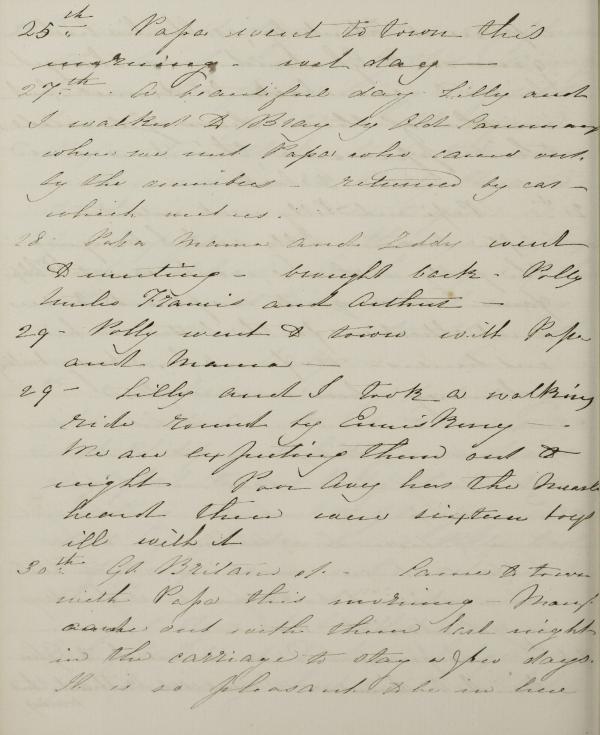 25th. Papa went to town this
morning. wet day —
27th. A beautiful day Lilly and
I walked to Bray by Old Connaught
where we met Papa who came out
by the omnibus — returned by car —
which met us.
28. Papa Mama and Eddy went
to meeting — brought back - Polly
Uncle Francis and Arthur —
29 - Polly went to town with Papa
and Mama —
29 - Lilly and I took a walking
ride round by Enniskerry — .
We are expecting them out to
night Poor Avy has the Measles
heard there were sixteen boys
ill with it
30th. Gt Britain st. - Came to town
with Papa this morning — Mary
came out with them last night
in the carriage to stay a few days.
It is so pleasant to be in here